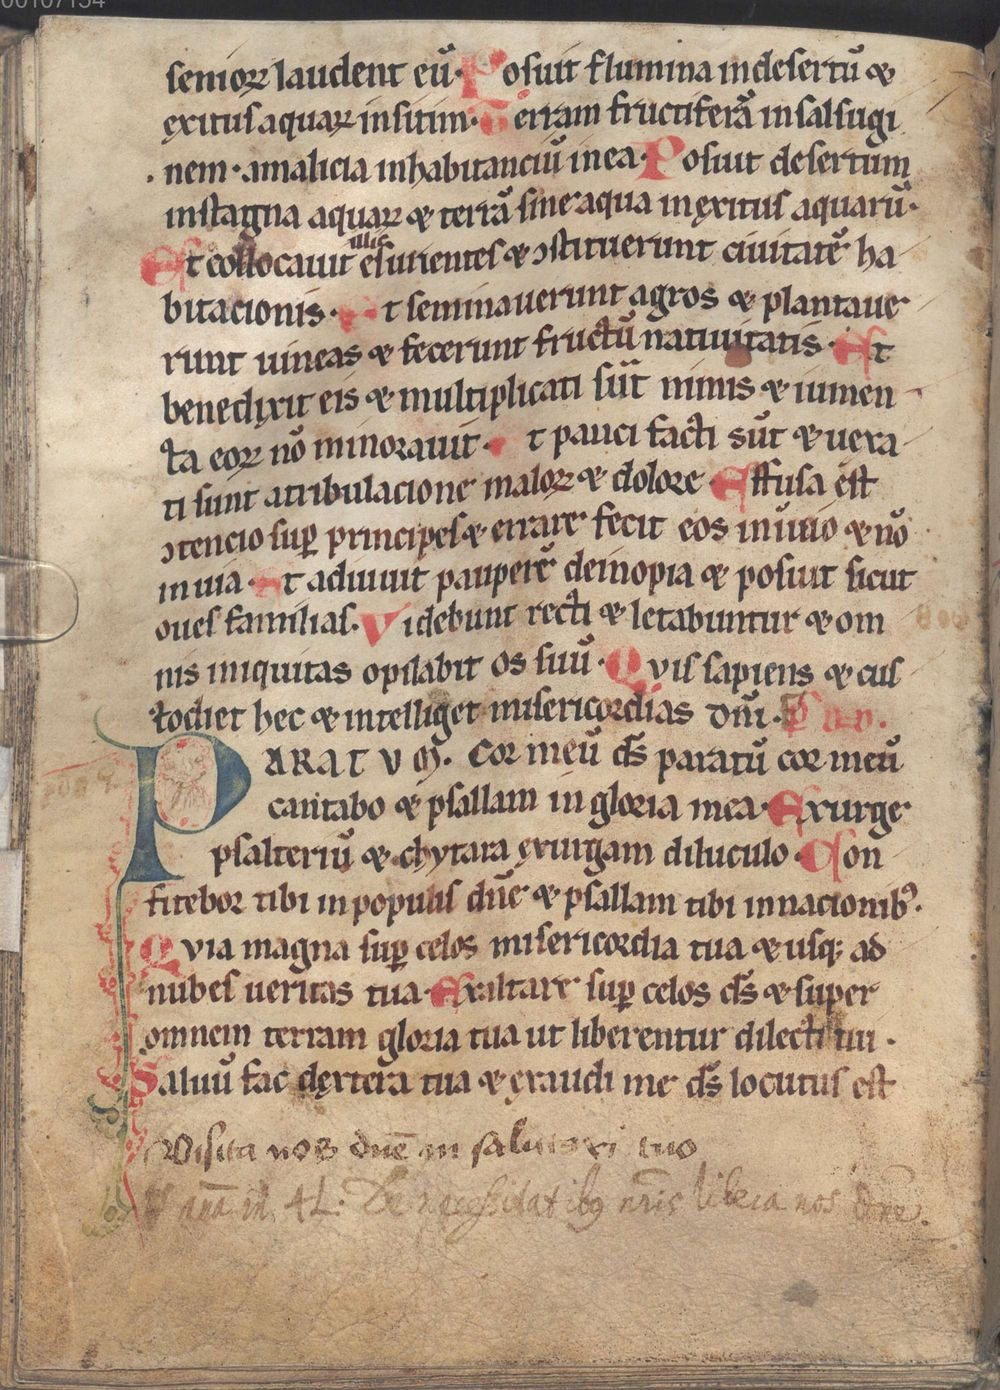 00107154
senioꝝ laudent eū· Posuit flumina indesertū &
exitus aquaꝝ insitim· Terram fructiferā insalsugi
nem· amalicia inhabitanciū inea· Posuit desertum
instagna aquaꝝ & terrā sine aqua inexitus aquarū·
illic
Et collocauit esurientes & ↄstituerunt ciuitatē ha
bitacionis· Et seminauerunt agros & plantaue
runt uineas & fecerunt fructū natiuitatis· Et
benedixit eis & multiplicati sūt nimis & iumen
ta eoꝝ nō minorauit· t pauci facti sūt & uexa
ti sunt atribulacione maloꝝ & dolore Effusa ēst
ↄtencio suꝑ principes & errare fecit eos inuio & nō
inuia· Et adiuuit pauperē deinopia & posuit sicut
oues familias· Videbunt recti & letabuntur & om
nis iniquitas opilabit os suū· Qvis sapiens & cus
todiet hec & intelliget misericordias dn̄i·
PARATVM· Cor meū ds̄ paratū cor meū
cantabo & psallam in gloria mea· Exurge
psalteriū & chytara exurgam diluculo· Con
fitebor tibi inpopulis dn̄e & psallam tibi innacionibꝰ·
Qvia magna suꝑ celos misericordia tua & usqꝫ ad
nubes ueritas tua· Exaltare suꝑ celos ds̄ & super
omnem terram gloria tua ut liberentur dilecti tui·
Saluū fac dextera tua & exaudi me ds̄ locutus est
Visita nos dn̄e in salutari tuo
an̄a in 4 L: De necessitatibꝰ nr̄is libera nos dn̄e.